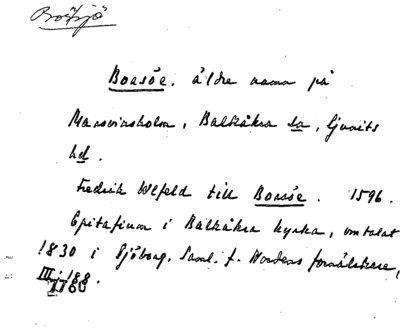 Bortsjö
Borsöe. äldre namn på
Marsvinsholm, Balkåkra sn, Ljunits
hd.
Fredrik Ulfeld till Borsöe. 1596.
Epitafium i Balkåkra kyrka, omtalat
1830 i Sjöborg, Saml. f. Nordens fornälskare,
III: 188.